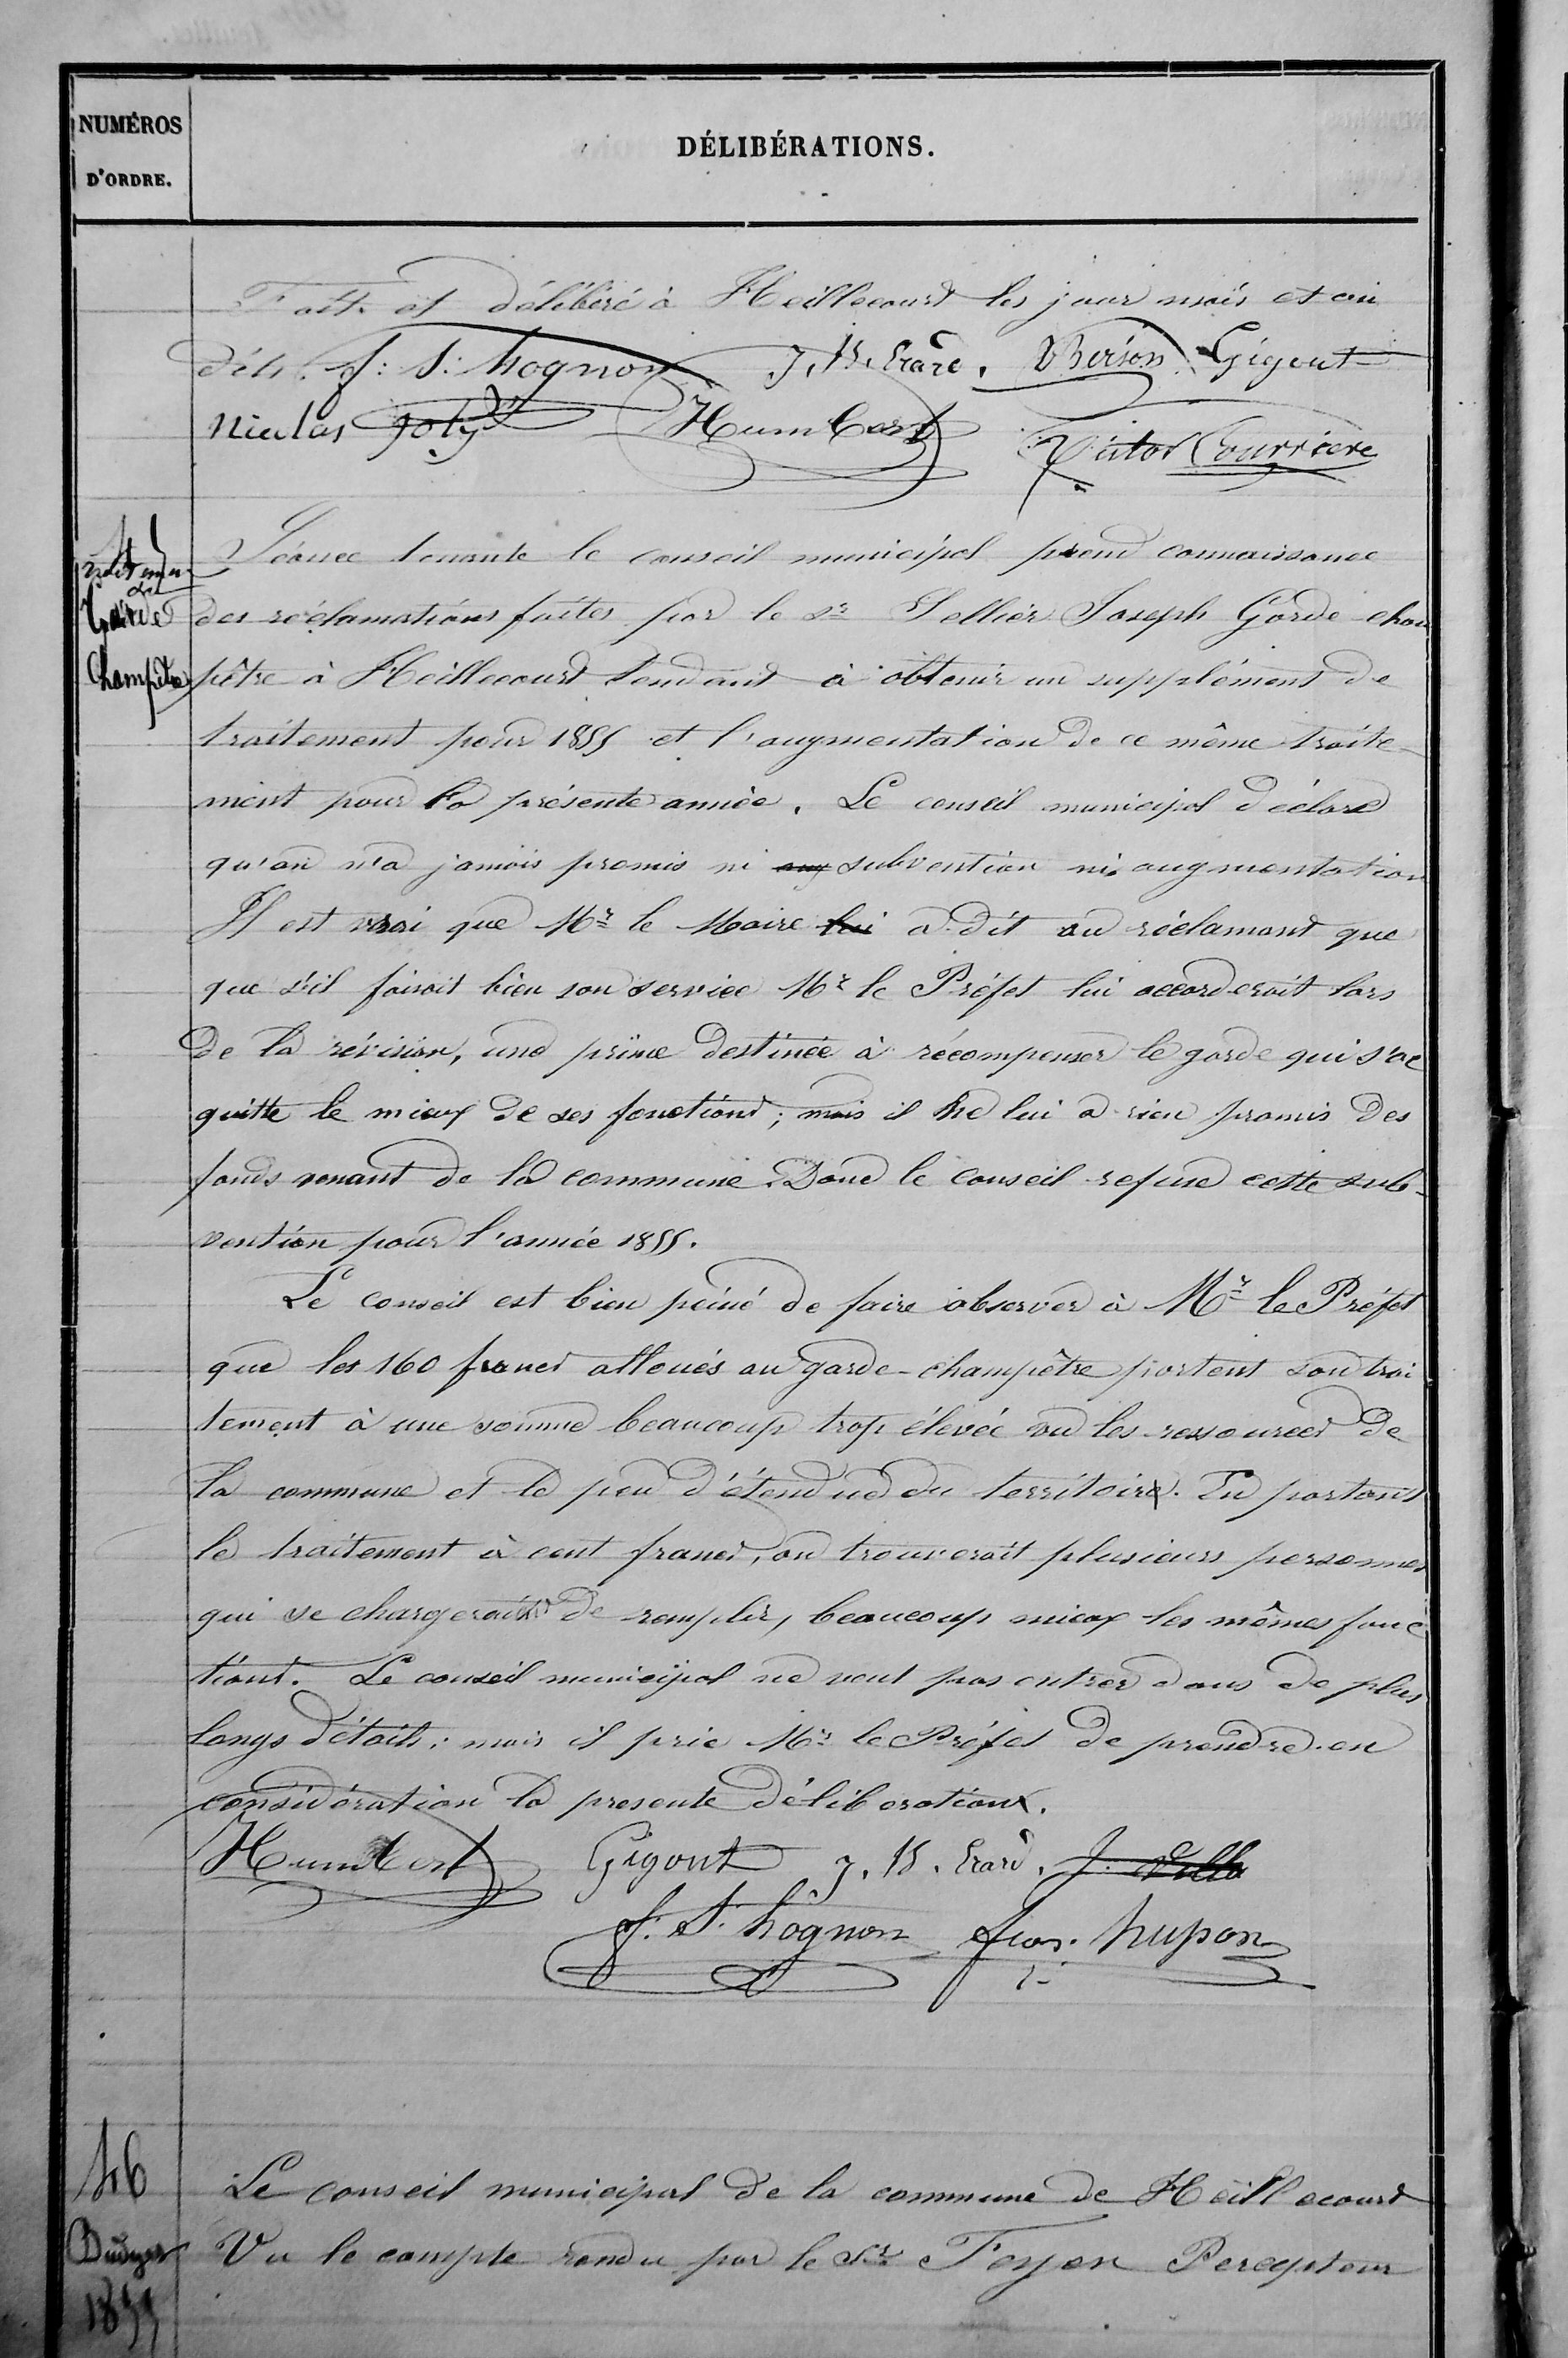 NUMÉROS
D'ORDRE.
DÉLIBÉRATIONS.
Fait et délibéré à Heillecourt les jour mois et an
dits. J: S: hognon J. B. Erard. Voirson Gigout
Nicolas Joly Humbert Victor Courriere
45
Traitement
du
Garde
Champêtre
Séance tenante le conseil municipal prend connaissance
des réclamations faites par le Sr Sellier Joseph Garde-cham
pêtre à Heillecourt tendant à obtenir un supplément de
traitement pour 1855 et l'augmentation de ce même traite-
ment pour la présente année. Le conseil municipal déclare
qu'on n'a jamais promis ni aug subvention ni augmentation
Il est vrai que Mr le Maire lui a dit au réclamant que
que s'il faisait bien son service Mr le Préfet lui accorderait lors
de la révision, une prime destinée à récompenser le garde qui s'ac
quitte le mieux de ses fonctions; mais il ne lui a rien promis des
fonds venant de la commune. Donc le conseil refuse cette sub-
vention pour l'année 1855.
Le conseil est bien peiné de faire observer à Mr le Préfet
que les 160 francs alloués au garde-champêtre portent son trai
tement à une somme beaucoup trop élevée vu les ressources de
la commune et le peu d'étendue du territoire. En portant
le traitement à cent francs, on trouverait plusieurs personnes
qui se chargeraient de remplir, beaucoup mieux les mêmes fonc
tions. Le conseil municipal ne veut pas entrer dans de plus
longs détails; mais il prie Mr le Préfet de prendre en
considération la presente délibération.
Humbert Gigout J. B. Erard. J.
J. S. hognon hupon
46
Budget
1855
Le conseil municipal de la commune de Heillecourt
Vu le compte rendu par le Sr Foyen Percepteur